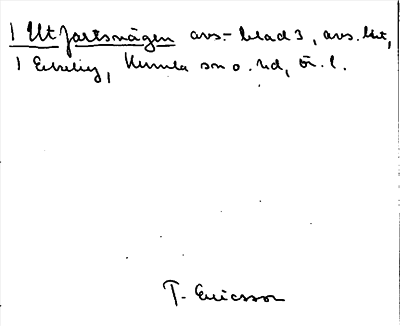 1 Utfartsvägen avs.- blad 3, avs. likt,
1 Ekeby, Kumla sn o. hd, ör. l.
T. Ericsson